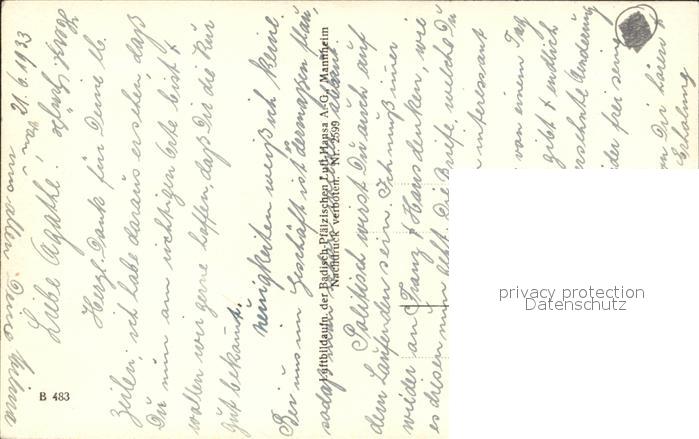 21.6.1933
Liebe Agathe!
Herzl. Dank für Deine lb.
Zeilen, ich habe daraus ersehen, daß
Du nun am richtigen Orte bist &
wollen wir gerne hoffen, daß Dir die Kur
gut bekommt.
Neuigkeiten weiß ich keine.
Bei uns im Geschäft ist dermassen flau,
sodaß man
Politisch wirst Du auch auf
dem Laufenden sein. Ich muß immer
wieder an Franz & Hans denken, wie
es diesen nun
Die Briefe, welche Du
interessant
von einem Tag
gibt & endlich
ersehnte Änderung
frei sein
von Dir hören &
Erholung
Luftbildaufn. der Badisch-Pfälzischen Luft-Hansa A.-G., Mannheim
Nachdruck verboten. Nr. 2599
B 483
privacy protection
www.oldthing.de